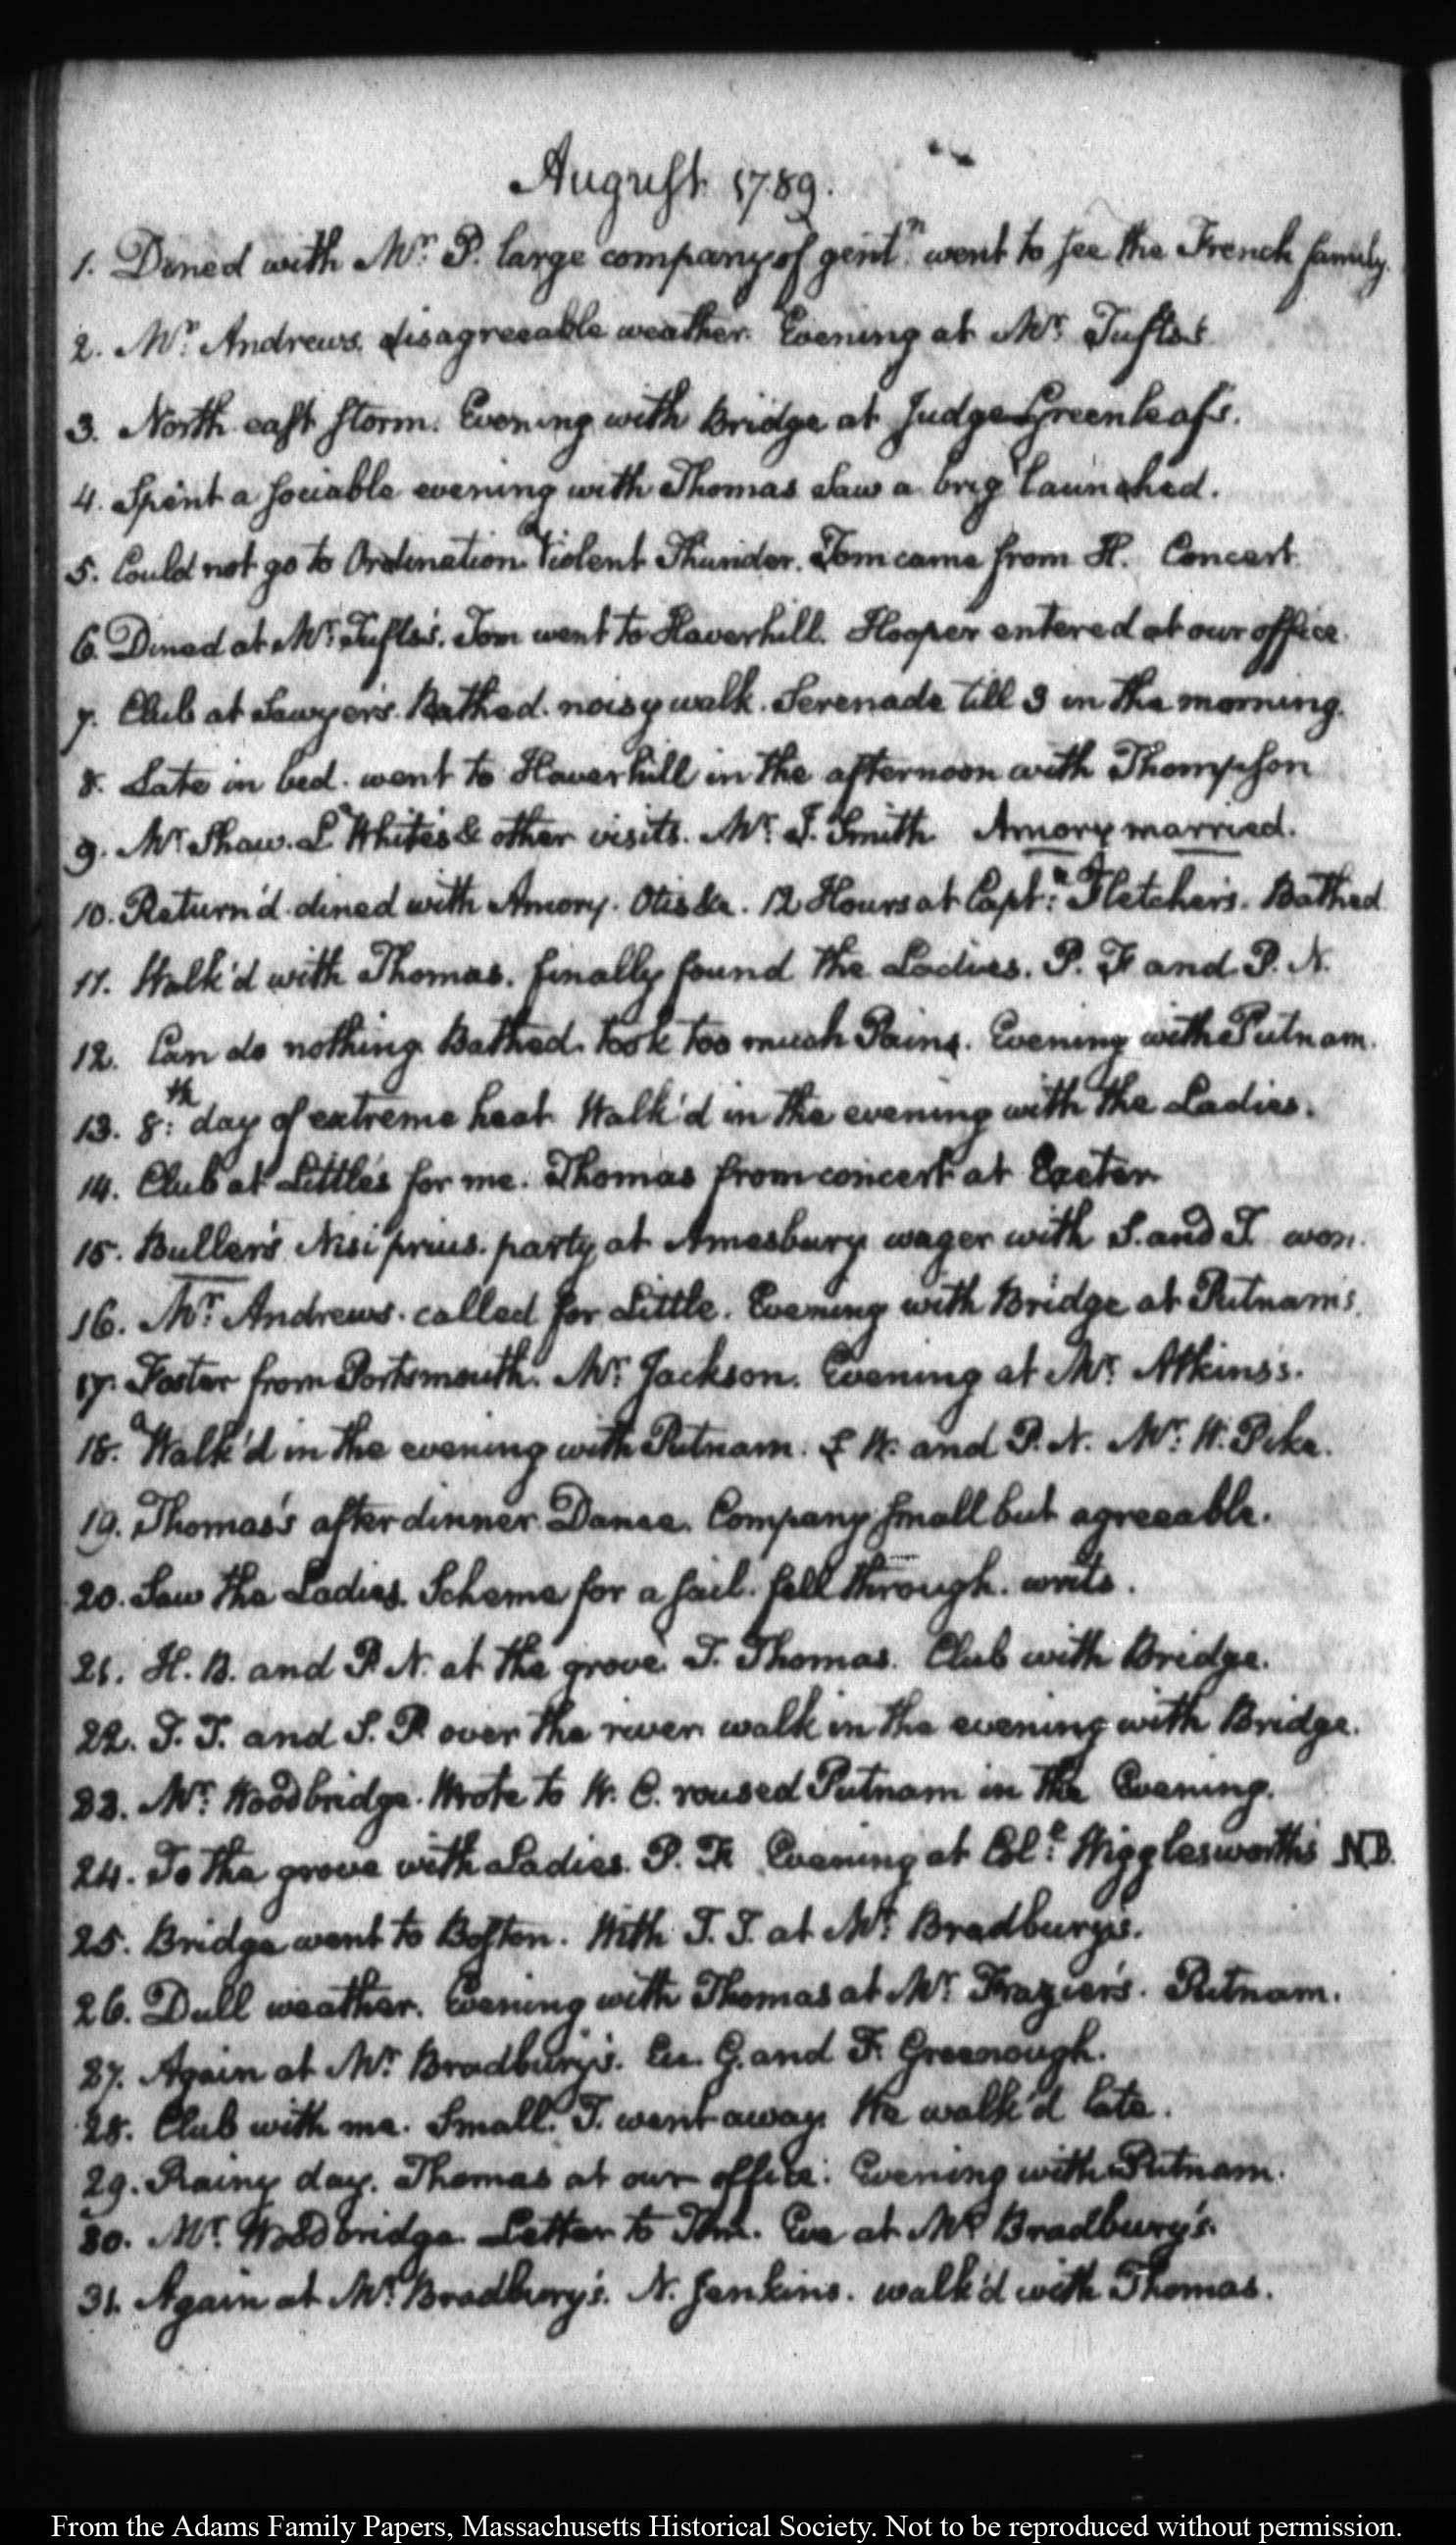 August 1789.
1. Dined with Mr. P. large company of gentn. went to see the French family.
2. Mr. Andrews. disagreeable weather. Evening at Mr. Tufts's
3. North east storm. Evening with Bridge at Judge Greenleaf's.
4. Spent a sociable evening with Thomas saw a brig launched.
5. Could not go to Ordination. Violent Thunder. Tom came from H. Concert.
6. Dined at Mr. Tufts's. Tom went to Haverhill. Hooper entered at our office.
7. Club at Sawyer's. Bathed. noisy walk. Serenade till 3 in the morning.
8. Late in bed. went to Haverhill in the afternoon with Thompson
9. Mr. Shaw. L. White's & other visits. Mr. J. Smith. Amory married.
10. Return'd. dined with Amory. Otis &c. 12 Hours at Captn. Fletcher's. Bathed
11. Walk'd with Thomas. finally found the Ladies. P. F and P. N.
12. Can do nothing. Bathed. took too much Pains. Evening with Putnam.
13. 8th. day of extreme heat. Walk'd in the evening with the Ladies.
14. Club at Little's for me. Thomas from concert at Exeter
15. Buller's Nisi prius. party at Amesbury. wager with S. and T. won.
16. Mr. Andrews. called for Little. Evening with Bridge at Putnam's.
17. Foster from Portsmouth. Mr. Jackson. Evening at Mr. Atkins's.
18. Walk'd in the evening with Putnam. W. and P. N. Mr. W. Pike.
19. Thomas's after dinner. Dance. Company small but agreeable.
20. Saw the Ladies. Scheme for a sail. fell through. writs.
21. H. B. and P. N. at the grove. J. Thomas. Club with Bridge.
22. J. T. and S. P. over the river. walk in the evening with Bridge.
23. Mr. Woodbridge. Wrote to W. C. roused Putnam in the Evening.
24. To the grove with Ladies. P. F. Evening at Col. Wigglesworth's N.B.
25. Bridge went to Boston. With J. T. at Mr. Bradbury's.
26. Dull weather. Evening with Thomas at Mr. Frazier's. Putnam.
27. Again at Mr. Bradbury's. G. and F. Greenough.
28. Club with me. Small. T. went away. We walk'd late.
29. Rainy day. Thomas at our office. Evening with Putnam.
30. Mr. Woodbridge. Letter to Eve at Mr. Bradbury's.
31. Again at Mr. Bradbury's. N. Jenkins. walk'd with Thomas.
From the Adams Family Papers, Massachusetts Historical Society. Not to be reproduced without permission.